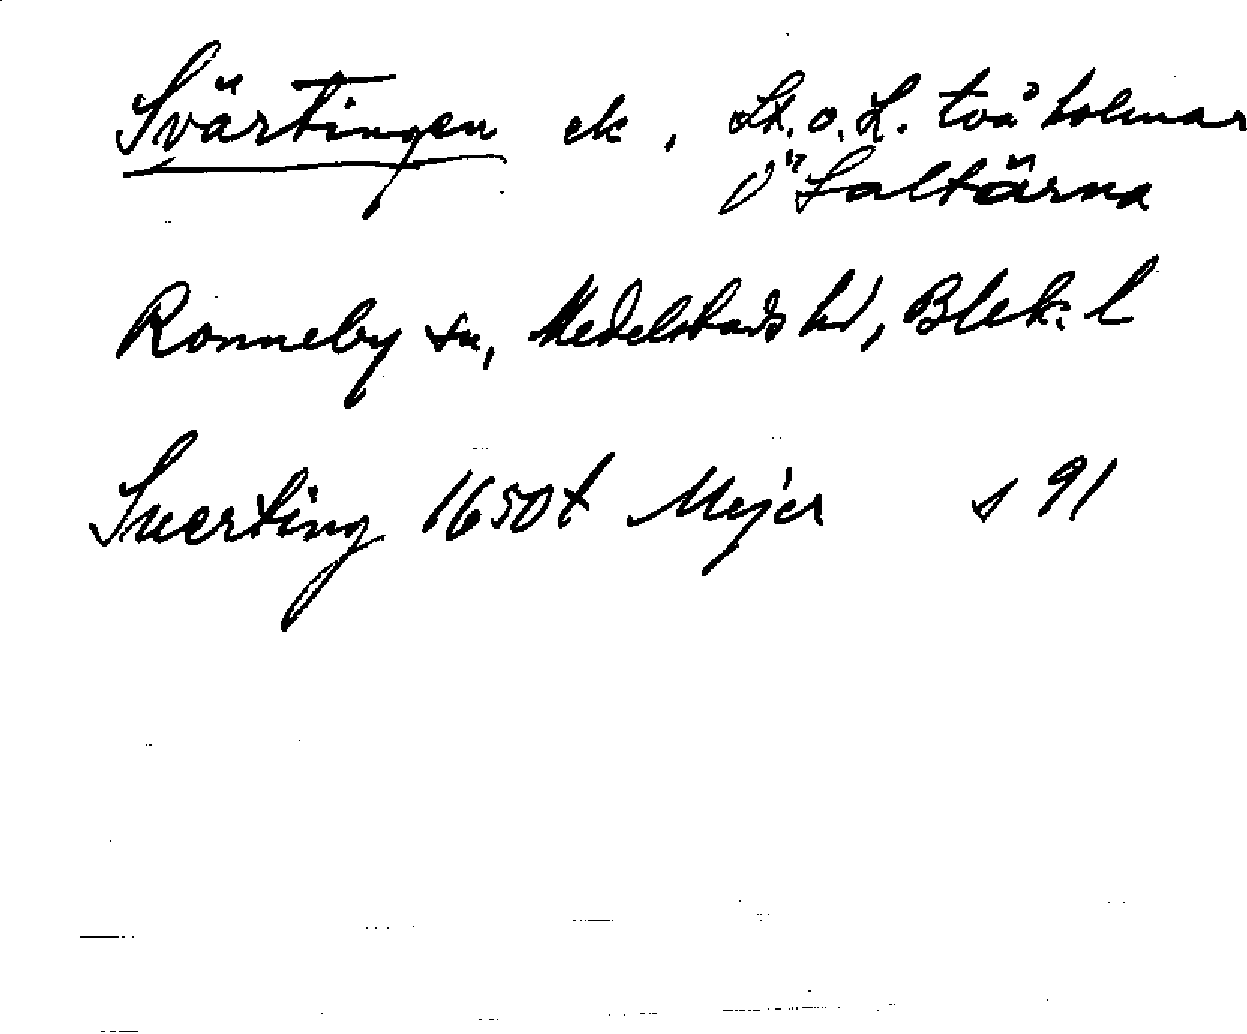 Svärtingen ek, St. o. L. två holmar
Ö Saltärna
Ronneby sn, Medelstads hd, Blek. l
Suerting 1650t Mejer s 91